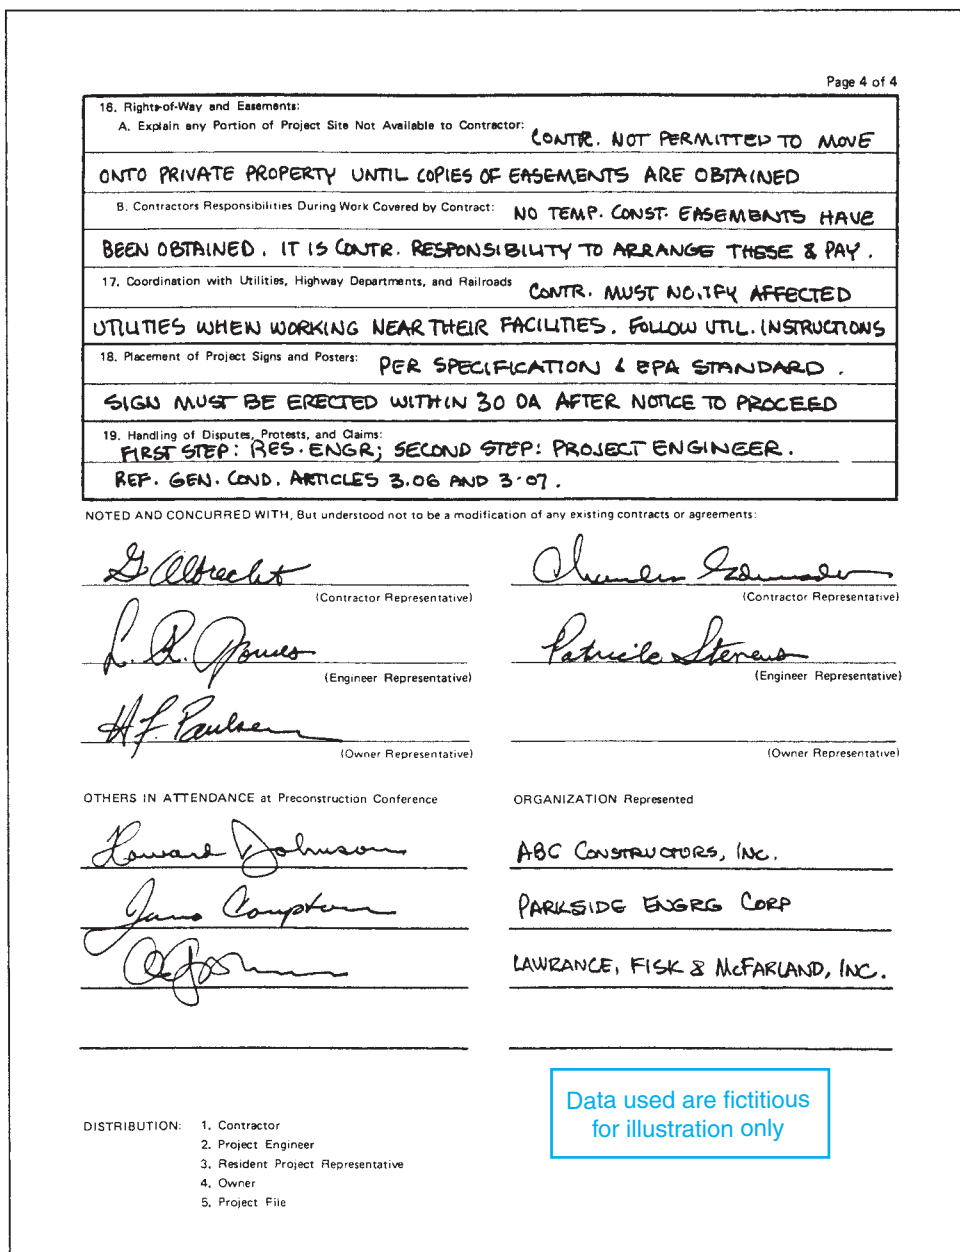 Page 4 of 4
16. Rights-of-Way and Easements:
A. Explain any Portion of Project Site Not Available to Contractor: CONTR. NOT PERMITTED TO MOVE
ONTO PRIVATE PROPERTY UNTIL COPIES OF EASEMENTS ARE OBTAINED
B. Contractors Responsibilities During Work Covered by Contract: NO TEMP. CONST. EASEMENTS HAVE
BEEN OBTAINED. IT IS CONTR. RESPONSIBILITY TO ARRANGE THESE & PAY.
17. Coordination with Utilities, Highway Departments, and Railroads CONTR. MUST NOTIFY AFFECTED
UTILITIES WHEN WORKING NEAR THEIR FACILITIES. FOLLOW UTIL. INSTRUCTIONS
18. Placement of Project Signs and Posters: PER SPECIFICATION & EPA STANDARD.
SIGN MUST BE ERECTED WITHIN 30 DA AFTER NOTICE TO PROCEED
19. Handling of Disputes, Protests, and Claims:
FIRST STEP: RES. ENGR; SECOND STEP: PROJECT ENGINEER.
REF. GEN. COND. ARTICLES 3.06 AND 3.07.
NOTED AND CONCURRED WITH, But understood not to be a modification of any existing contracts or agreements:
G Albrecht
(Contractor Representative) (Contractor Representative)
L. R. Jones Patricia Stevens
(Engineer Representative) (Engineer Representative)
H F. Paulsen
(Owner Representative) (Owner Representative)
OTHERS IN ATTENDANCE at Preconstruction Conference ORGANIZATION Represented
Howard Johnson ABC CONSTRUCTORS, INC.
James Compton PARKSIDE ENGRG CORP
LAWRANCE, FISK & McFARLAND, INC.
Data used are fictitious
for illustration only
DISTRIBUTION: 1. Contractor
2. Project Engineer
3. Resident Project Representative
4. Owner
5. Project File